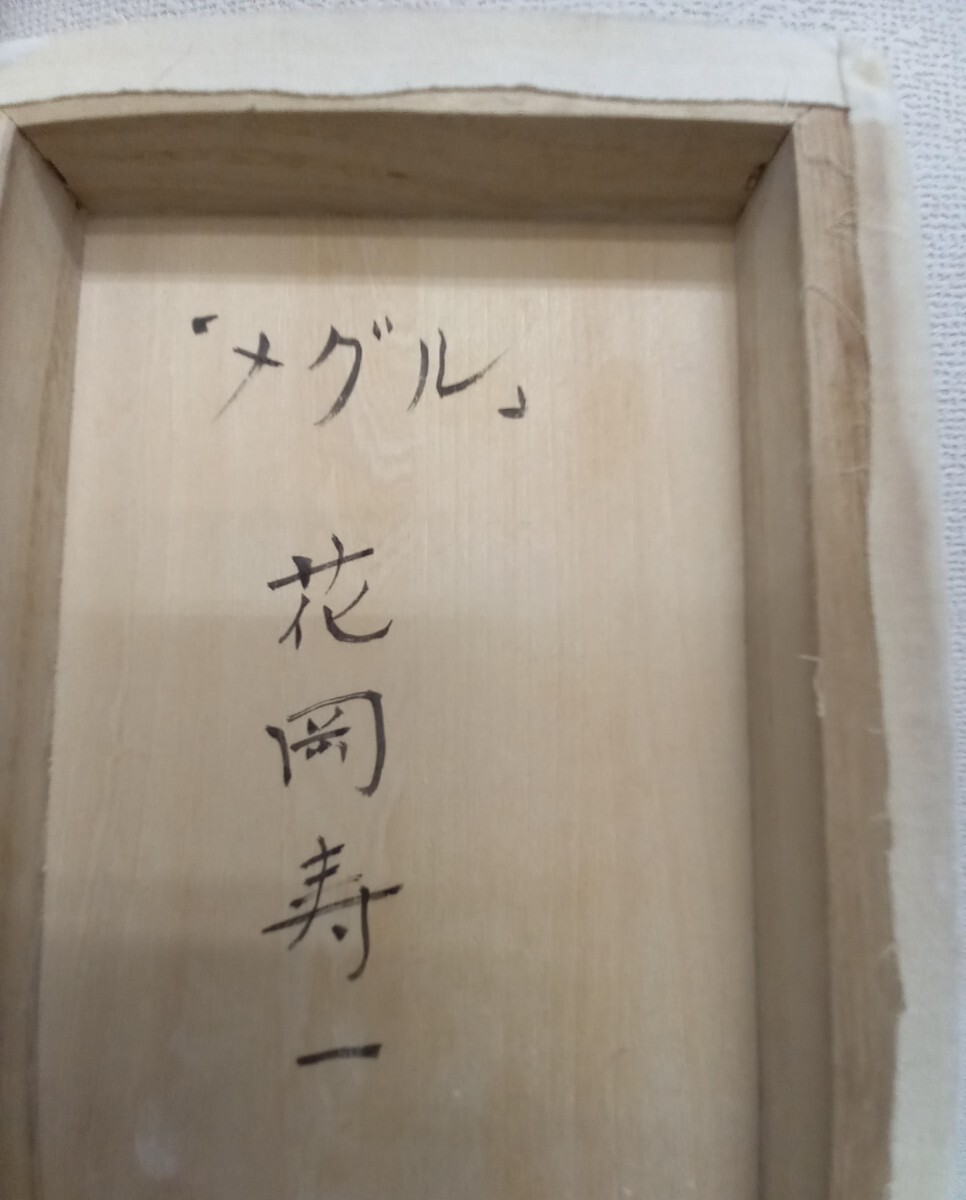 「メグル」
花岡寿一